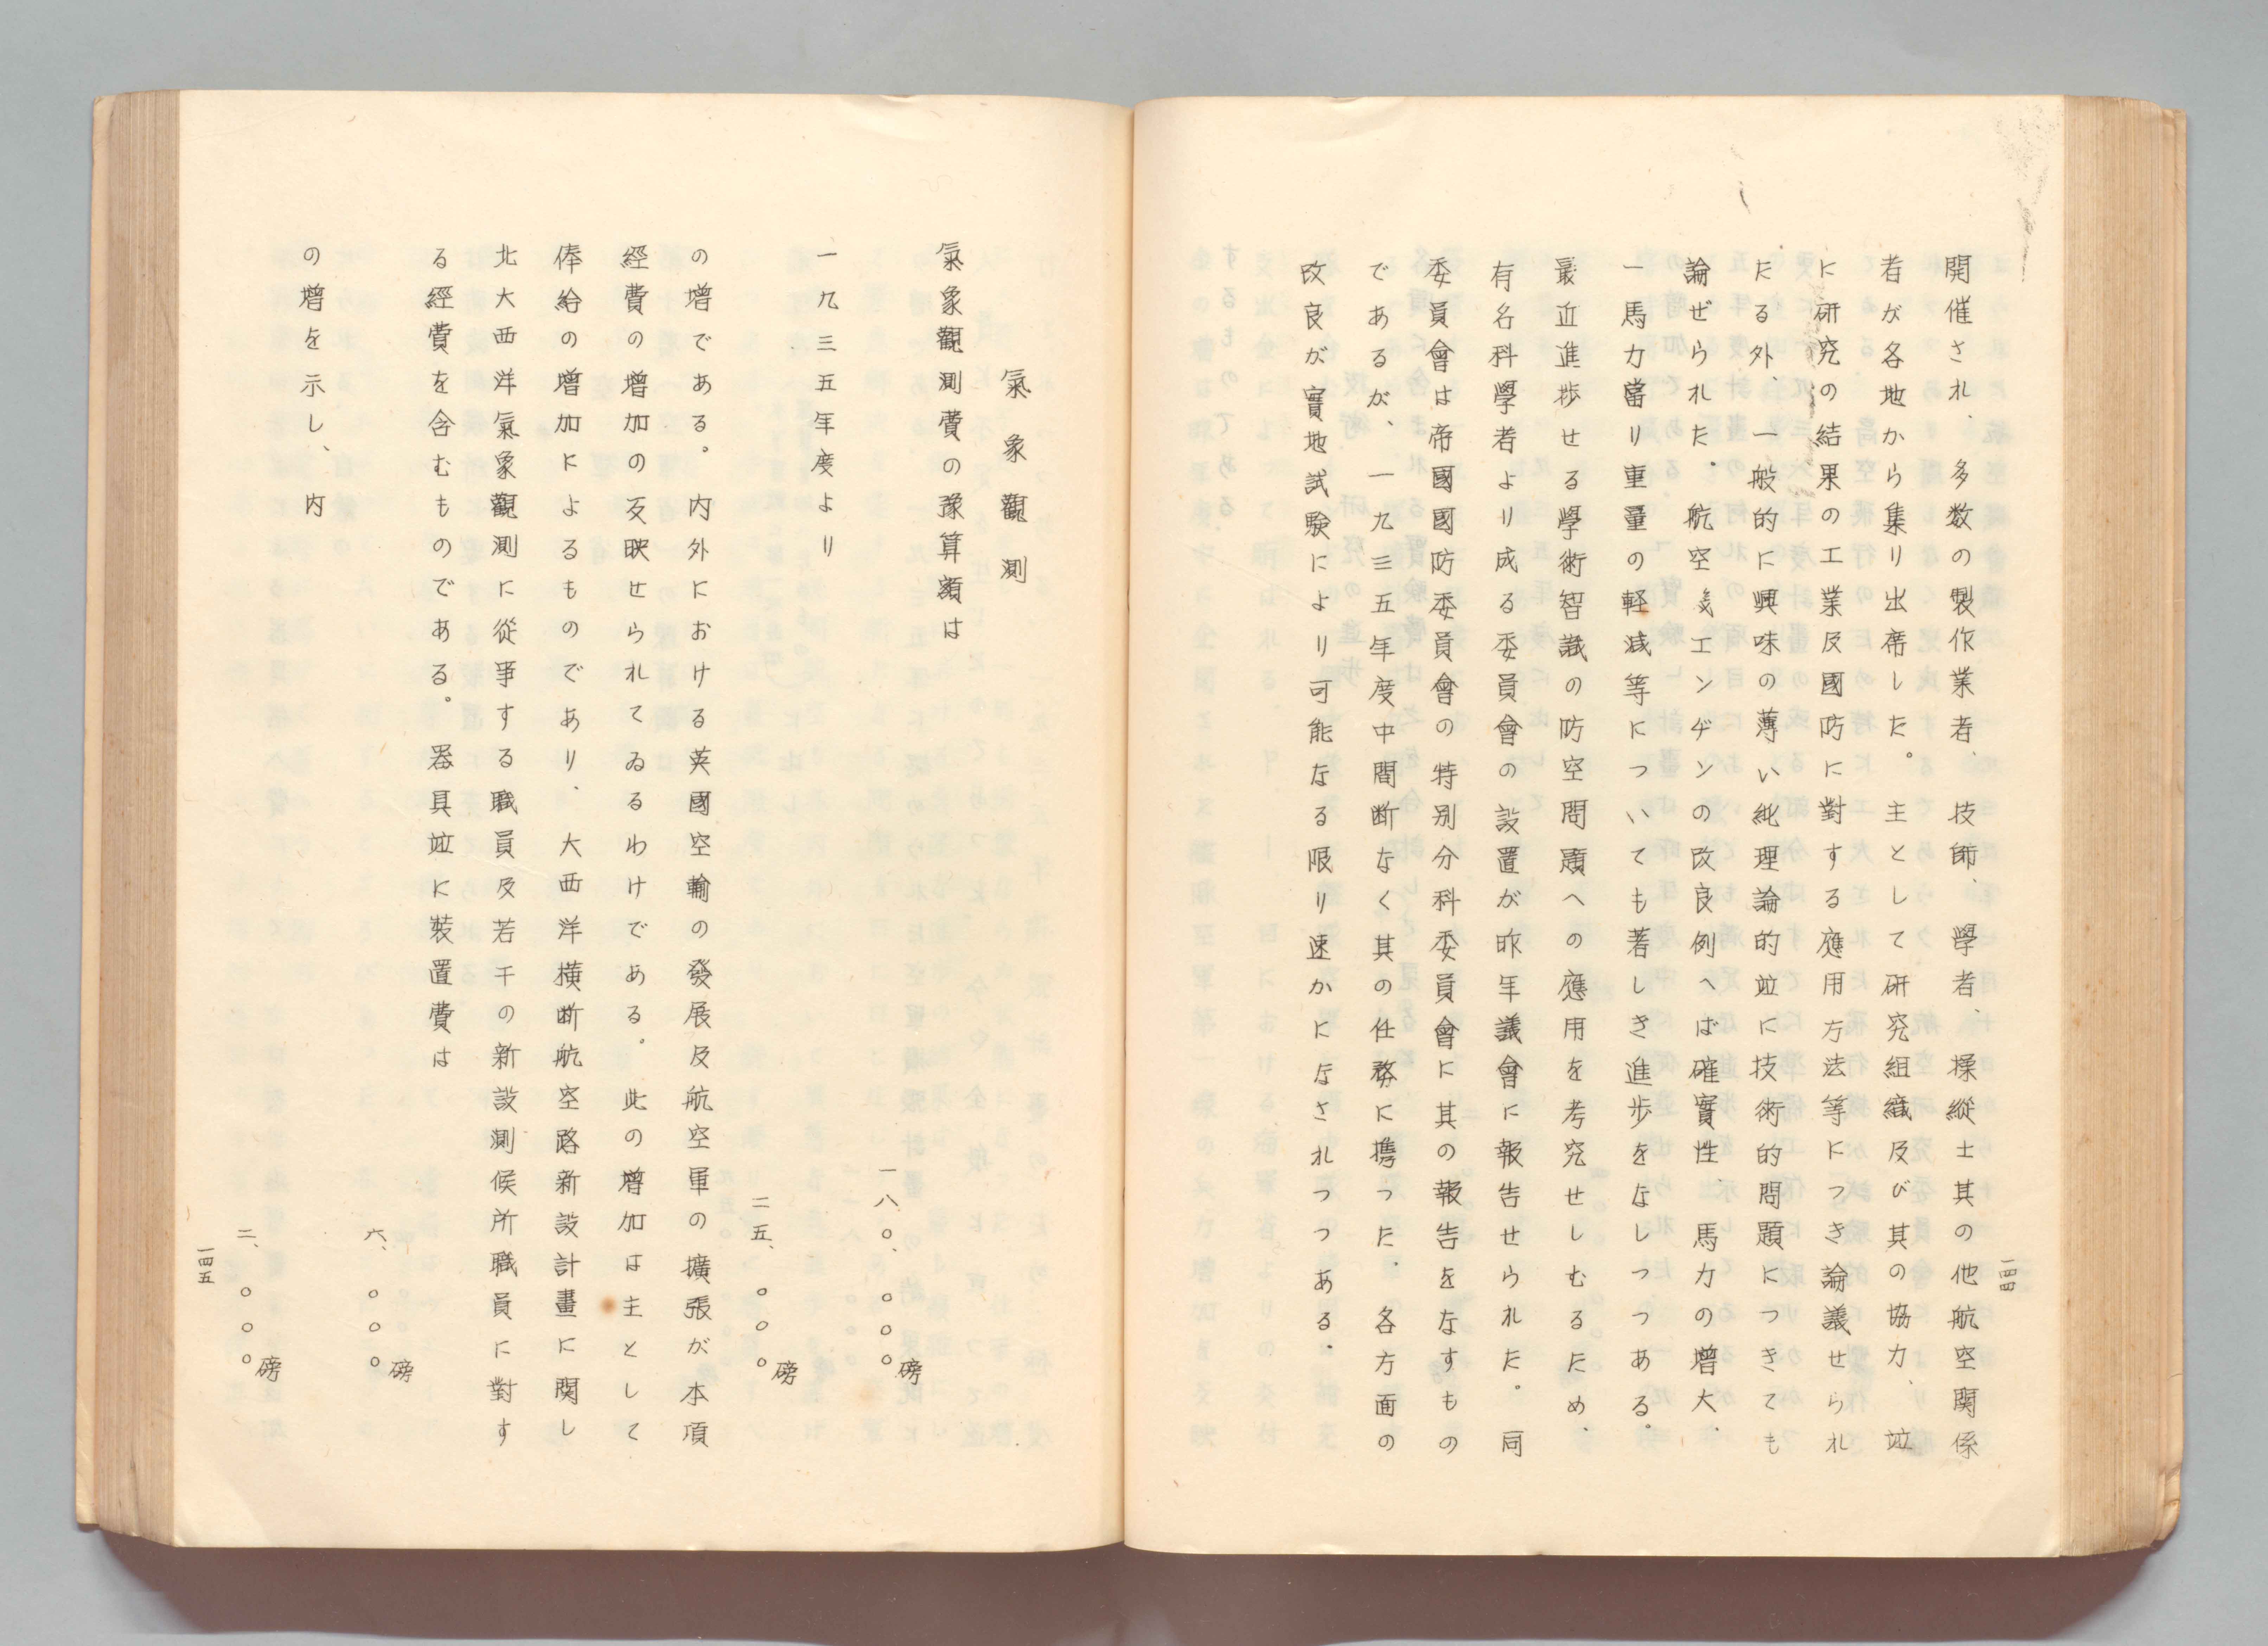 開催され、多数の製作業者、技師、學者、操縱士其の他航空関係
者が各地から集り出席した。主として研究組織及び其の協力、竝
に研究の結果の工業及國防に對する應用方法等につき論議せられ
たる外、一般的に興味の薄い純理論的竝に技術的問題につきても
論ぜられた。航空エンヂンの改良例へば確實性、馬力の増大、
一馬力當り重量の軽減等についても著しき進歩をなしつつある。
最近進歩せる學術智識の防空問題への應用を考究せしむるため、
有名科學者より成る委員會の設置が昨年議會に報告せられた。同
委員會は帝國國防委員會の特別分科委員會に其の報告をなすもの
であるが、一九三五年度中間断なく其の仕務に携った。各方面の
改良が實地試験により可能なる限り速かになされつつある。
一四四
氣象觀測
氣象觀測費の豫算額は
一八〇、〇〇〇磅
一九三五年度より
二五、〇〇〇磅
の増である。内外における英國空輸の發展及航空軍の擴張が本項
經費の増加の反映せられてゐるわけである。此の増加は主として
俸給の増加によるものであり、大西洋横断航空路新設計畫に関し
北大西洋氣象觀測に從事する職員及若干の新設測候所職員に對す
る經費を含むものである。器具竝に裝置費は
六、〇〇〇磅
の増を示し、内
二、〇〇〇磅
一四五